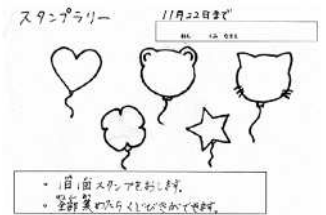 スタンプラリー
11月22日まで
・1日1個スタンプをおします。
・全部集めたらくじびきができます。